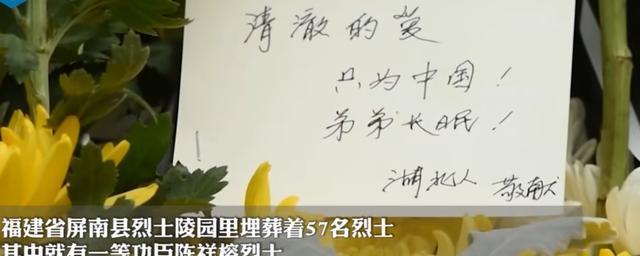 清澈的爱
只为中国！
弟弟长眠！
湖北人 敬献
福建省屏南县烈士陵园里埋葬着57名烈士
其中就有一等功臣陈祥榕烈士